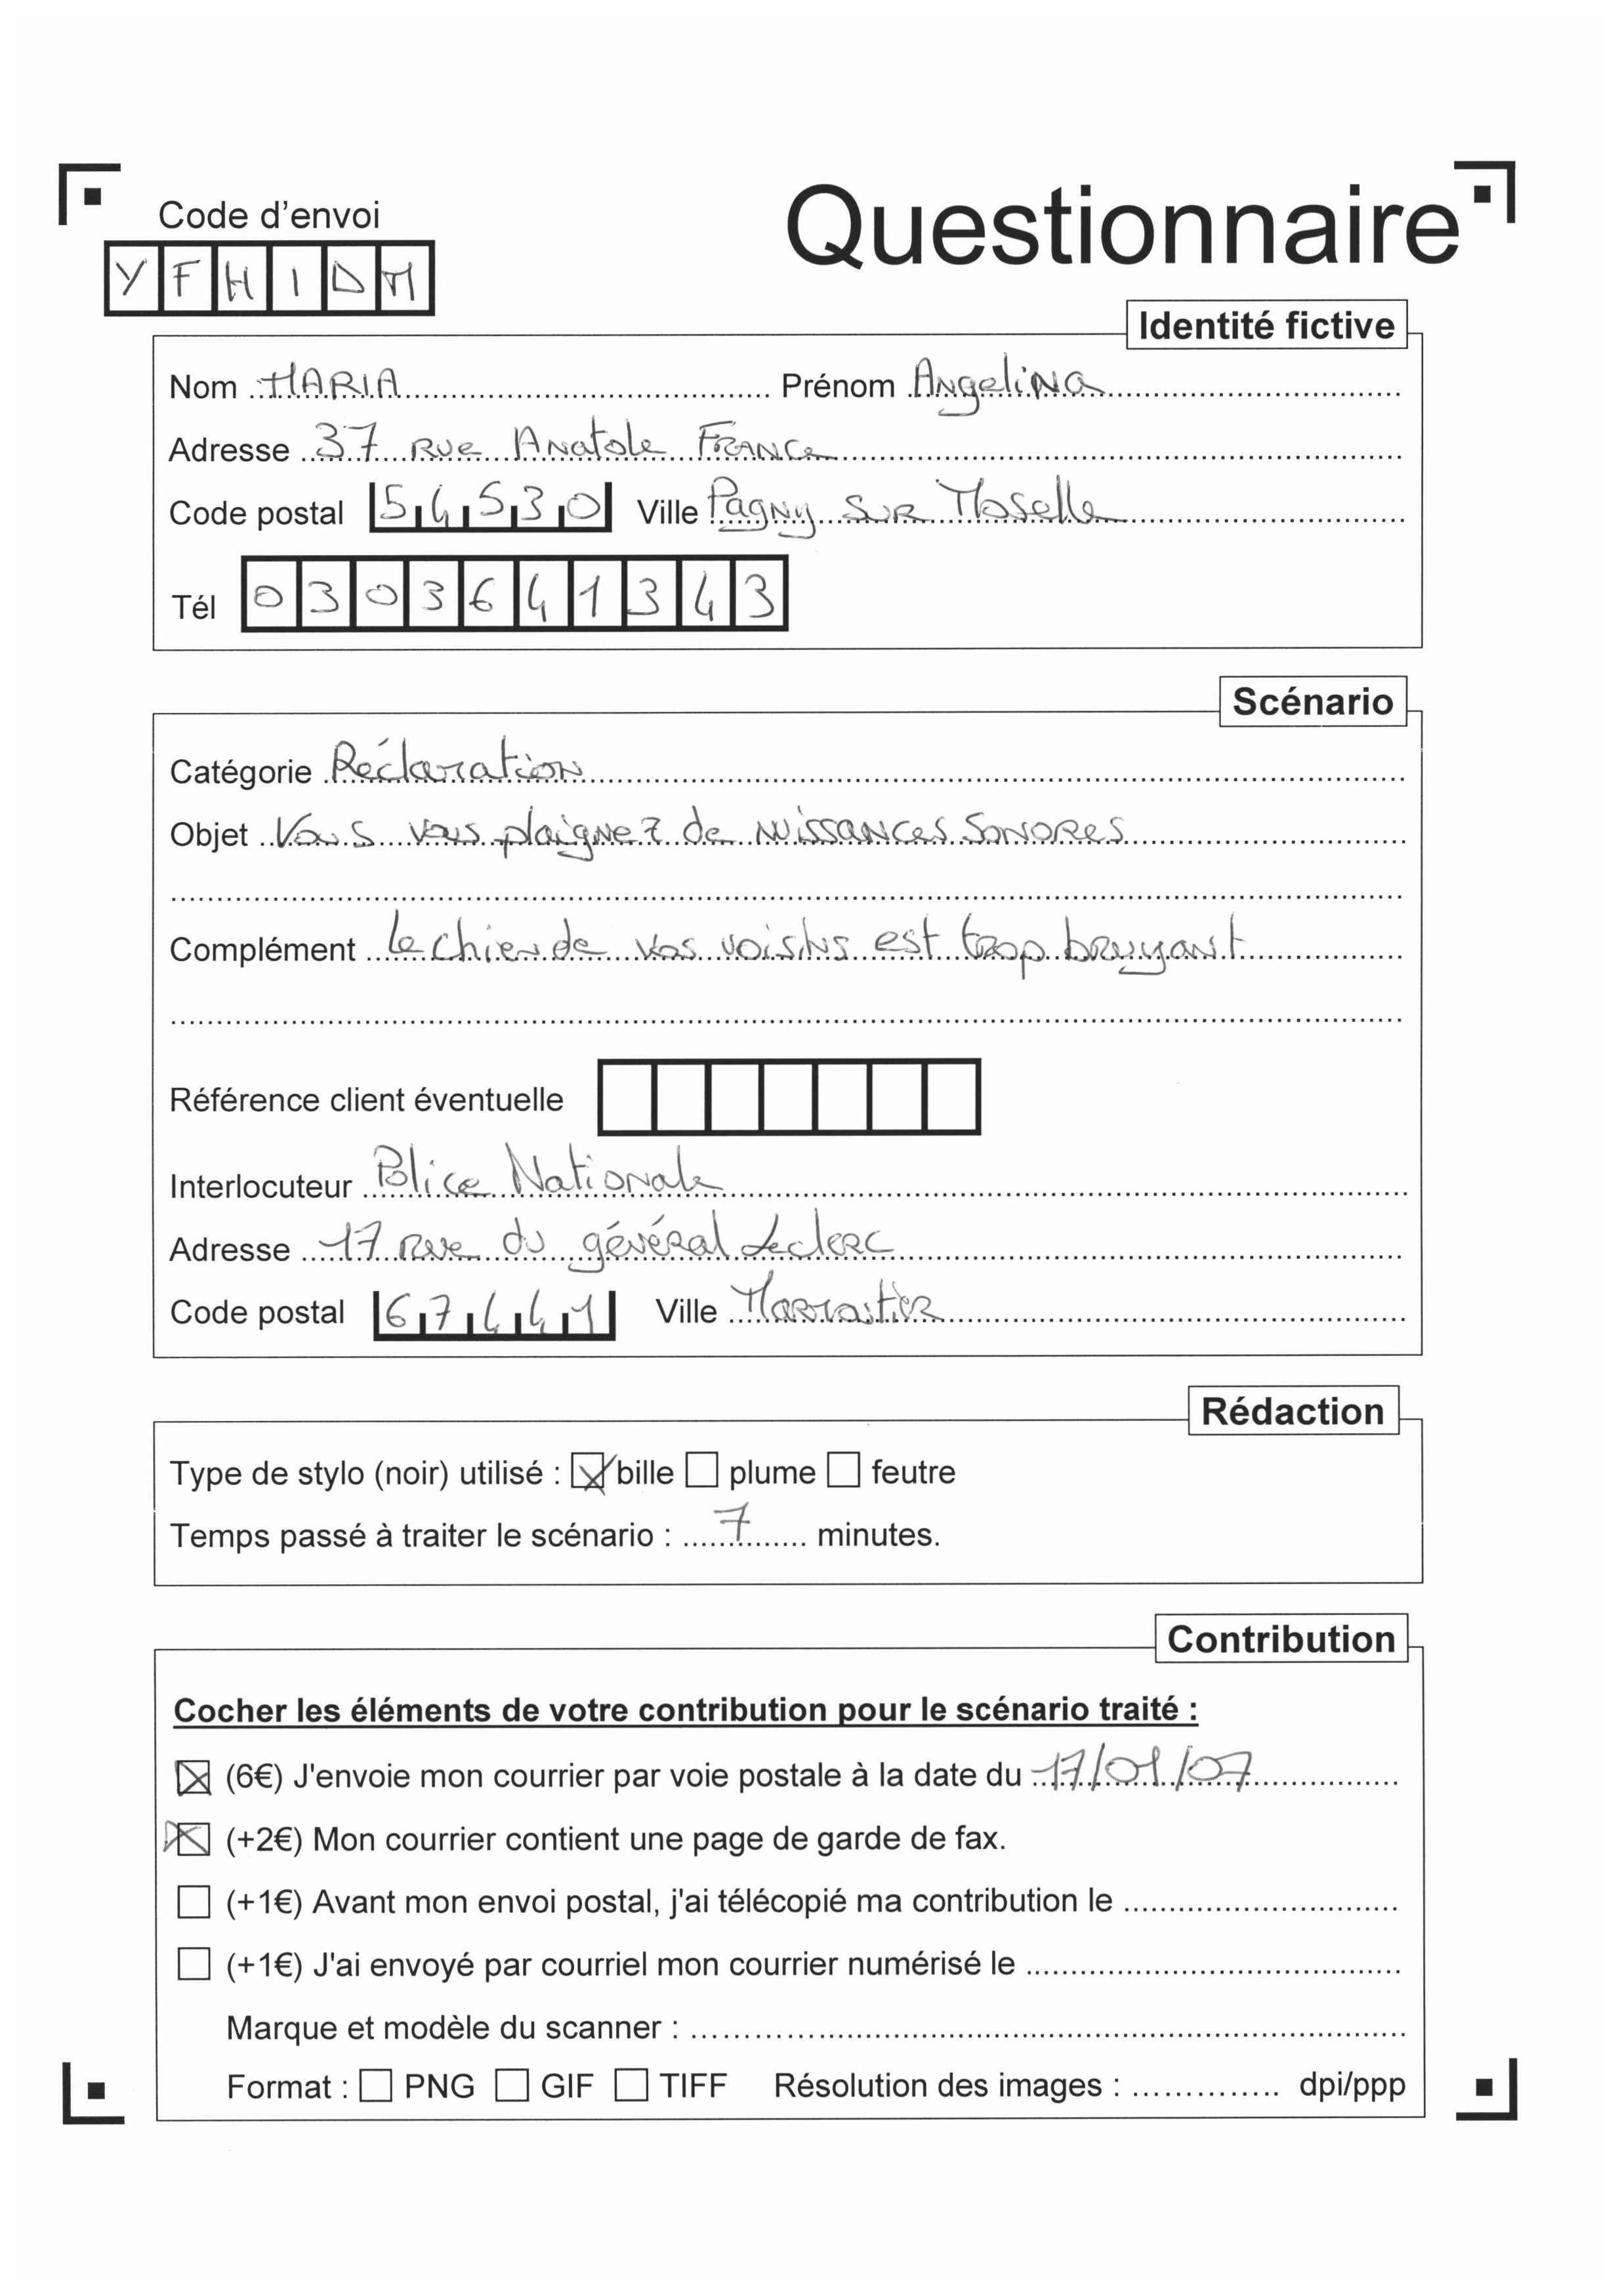 Questionnaire
Code d'envoi
YFHIDM
Identité fictive
Nom MARIA Prénom Angelina
Adresse 37 rue Anatole France
Code postal 54530 Ville Pagny sur Moselle
Tél 0303641343
Scénario
Catégorie Réclamation
Objet Vous vous plaignez de nuissances sonores
Complément Le chien de vos voisins est trop bruyant
Référence client éventuelle
Interlocuteur Police Nationale
Adresse 17 rue du général Leclerc
Code postal 67441 Ville
Rédaction
Type de stylo (noir) utilisé : ☒ bille ☐ plume ☐ feutre
Temps passé à traiter le scénario : 7 minutes.
Contribution
Cocher les éléments de votre contribution pour le scénario traité :
☒ (6€) J'envoie mon courrier par voie postale à la date du 17/01/07
☒ (+2€) Mon courrier contient une page de garde de fax.
☐ (+1€) Avant mon envoi postal, j'ai télécopié ma contribution le
☐ (+1€) J'ai envoyé par courriel mon courrier numérisé le
Marque et modèle du scanner :
Format : ☐ PNG ☐ GIF ☐ TIFF Résolution des images : dpi/ppp